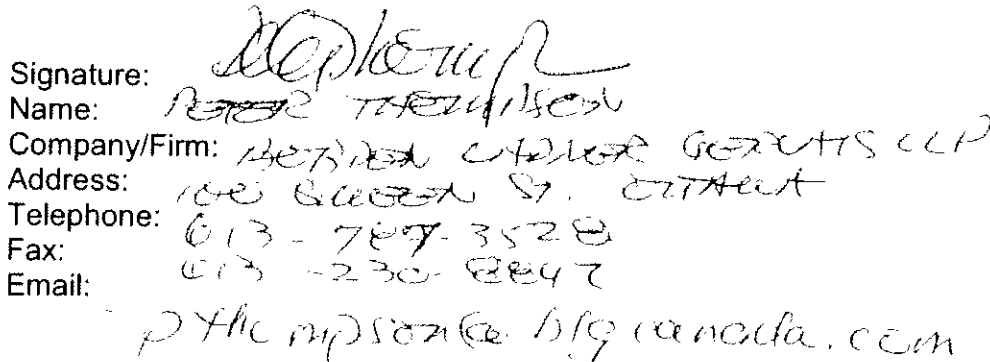 Signature:
Name: PETER THOMPSON
Company/Firm: BORDEN LADNER GERVAIS LLP
Address: 100 QUEEN ST. OTTAWA
Telephone: 613-787-3528
Fax: 613-230-8842
Email:
pthompson@blgcanada.com